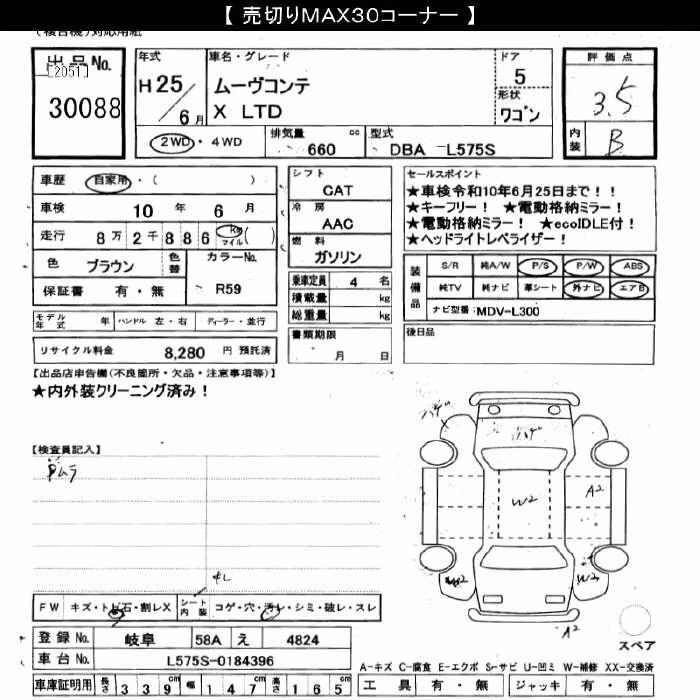 【 売切りMAX30コーナー 】
(複合機)対応用紙
出品No.
[2051]
30088
年式
H25/6月
車名・グレード
ムーヴコンテ
X LTD
ドア
5
形状
ワゴン
評価点
3.5
内装
B
2WD・4WD
排気量
660 cc
型式
DBA -L575S
車歴 自家用・( )
車検 10年 6月
走行 8万2千886 km マイル ( )
色 ブラウン 色替
カラーNo. R59
保証書 有・無
モデル年式 年 ハンドル 左・右 ディーラー・並行
リサイクル料金 8,280 円 預託済
シフト
CAT
冷房
AAC
燃料
ガソリン
乗車定員 4 名
積載量 kg
総重量 kg
書類期限
月 日
セールスポイント
★車検令和10年6月25日まで!!
★キーフリー! ★電動格納ミラー!
★電動格納ミラー! ★ecoIDLE付!
★ヘッドライトレベライザー!
装備品
S/R 純A/W P/S P/W ABS
純TV 純ナビ 革シート 外ナビ エアB
ナビ型番:MDV-L300
後日品
【出品店申告欄(不良箇所・欠品・注意事項等)】
★内外装クリーニング済み!
【検査員記入】
ハゲ
ハゲ
W2
A2
W2
W2
A2
スペア
FW キズ・トビ石・割レX シート内装 コゲ・穴・汚レ・シミ・破レ・スレ
登録No. 岐阜 58A え 4824
車台No. L575S-0184396
車庫証明用 長さ 339cm 幅 147cm 高さ 165cm
A-キズ C-腐食 E-エクボ S-サビ U-凹ミ W-補修 XX-交換済
工具 有・無 ジャッキ 有・無